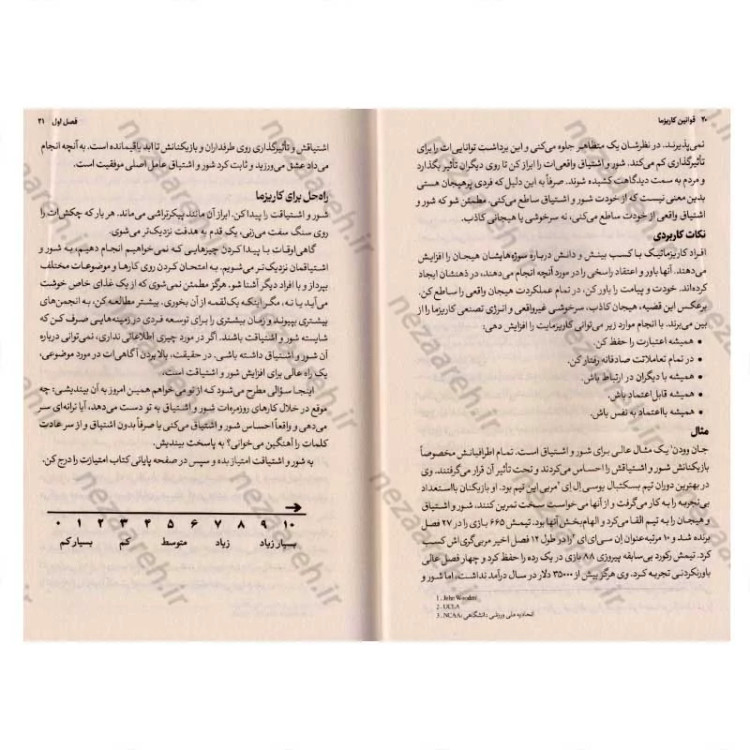 ۲۰ قوانین کاریزما
نمی‌پذیرند. در نظرشان یک متظاهر جلوه می‌کنی و این برداشت توانایی‌ات را برای
تأثیرگذاری کم می‌کند. شور و اشتیاق واقعی‌ات را ابراز کن تا روی دیگران تأثیر بگذارد
و مردم به سمت دیدگاهت کشیده شوند. صرفاً به این دلیل که فردی پرهیجان هستی
بدین معنی نیست که از خودت شور و اشتیاق ساطع می‌کنی. مطمئن شو که شور و
اشتیاق واقعی از خودت ساطع می‌کنی، نه سرخوشی یا هیجانی کاذب.
نکات کاربردی
افراد کاریزماتیک با کسب بینش و دانش درباره سوژه‌هایشان هیجان را افزایش
می‌دهند. آنها باور و اعتقاد راسخی را در مورد آنچه انجام می‌دهند، در ذهنشان ایجاد
کرده‌اند. خودت و پیامت را باور کن، در تمام عملکردت هیجان واقعی را ساطع کن.
برعکس این قضیه، هیجان کاذب، سرخوشی غیرواقعی و انرژی تصنعی کاریزما را از
بین می‌برند. با انجام موارد زیر می‌توانی کاریزمایت را افزایش دهی:
• همیشه اعتبارت را حفظ کن.
• در تمام تعاملاتت صادقانه رفتار کن.
• همیشه با دیگران در ارتباط باش.
• همیشه قابل اعتماد باش.
• همیشه بااعتماد به نفس باش.
مثال
جان وودن¹ یک مثال عالی برای شور و اشتیاق است. تمام اطرافیانش مخصوصاً
بازیکنانش شور و اشتیاقش را احساس می‌کردند و تحت تأثیر آن قرار می‌گرفتند. وی
در بهترین دوران تیم بسکتبال یوسی اِل اِی² مربی این تیم بود. او بازیکنان بااستعداد
بی‌تجربه را به کار می‌گرفت و از آنها می‌خواست سخت تمرین کنند. شور و اشتیاق
و هیجان را به تیم القا می‌کرد و الهام‌بخش آنها بود. تیمش ۶۶۵ بازی را در ۲۷ فصل
برنده شد و ۱۰ مرتبه‌عنوان اِن سی‌ای‌ای³ را در طول ۱۲ فصل اخیر مربی‌گری‌اش کسب
کرد. تیمش رکورد بی‌سابقه پیروزی ۸۸ بازی در یک رده را حفظ کرد و چهار فصل عالی
باورنکردنی تجربه کرد. وی هرگز بیش از ۳۵۰۰۰ دلار در سال درآمد نداشت، اما شور و
1. John Wooden
2. UCLA
3. NCAA: اتحادیه ملی ورزشی دانشگاهی
فصل اول ۲۱
اشتیاقش و تأثیرگذاری روی طرفداران و بازیکنانش تا ابد باقیمانده است. به آنچه انجام
می‌داد عشق می‌ورزید و ثابت کرد شور و اشتیاق عامل اصلی موفقیت است.
راه‌حل برای کاریزما
شور و اشتیاقت را پیدا کن. ابراز آن مانند پیکرتراشی می‌ماند. هر بار که چکش‌ات را
روی سنگ سفت می‌زنی، یک قدم به هدفت نزدیک‌تر می‌شوی.
گاهی اوقات با پیدا کردن چیزهایی که نمی‌خواهیم انجام دهیم، به شور و
اشتیاقمان نزدیک‌تر می‌شویم. به امتحان کردن روی کارها و موضوعات مختلف
بپرداز و با افراد دیگر آشنا شو. هرگز مطمئن نمی‌شوی که از یک غذای خاص خوشت
می‌آید یا نه، مگر اینکه یک لقمه از آن بخوری. بیشتر مطالعه کن، به انجمن‌های
بیشتری بپیوند و زمان بیشتری را برای توسعه فردی در زمینه‌هایی صرف کن که
شایسته شور و اشتیاقت باشند. اگر در مورد چیزی اطلاعاتی نداری، نمی‌توانی درباره
آن شور و اشتیاق داشته باشی. در حقیقت، بالا بردن آگاهی ات در مورد موضوعی،
یک راه عالی برای افزایش شور و اشتیاقت است.
اینجا سؤالی مطرح می‌شود که از تو می‌خواهم همین امروز به آن بیندیشی: چه
موقع در خلال کارهای روزمره‌ات شور و اشتیاق به تو دست می‌دهد، آیا ترانه‌ای سر
می‌دهی و واقعاً احساس شور و اشتیاق می‌کنی یا صرفاً بدون اشتیاق و از سر عادت
کلمات را آهنگین می‌خوانی؟ به پاسخت بیندیش.
به شور و اشتیاقت امتیاز بده و سپس در صفحه پایانی کتاب امتیازت را درج کن.
۰ ۱ ۲ ۳ ۴ ۵ ۶ ۷ ۸ ۹ ۱۰
بسیار کم کم متوسط زیاد بسیار زیاد
nezaareh.ir